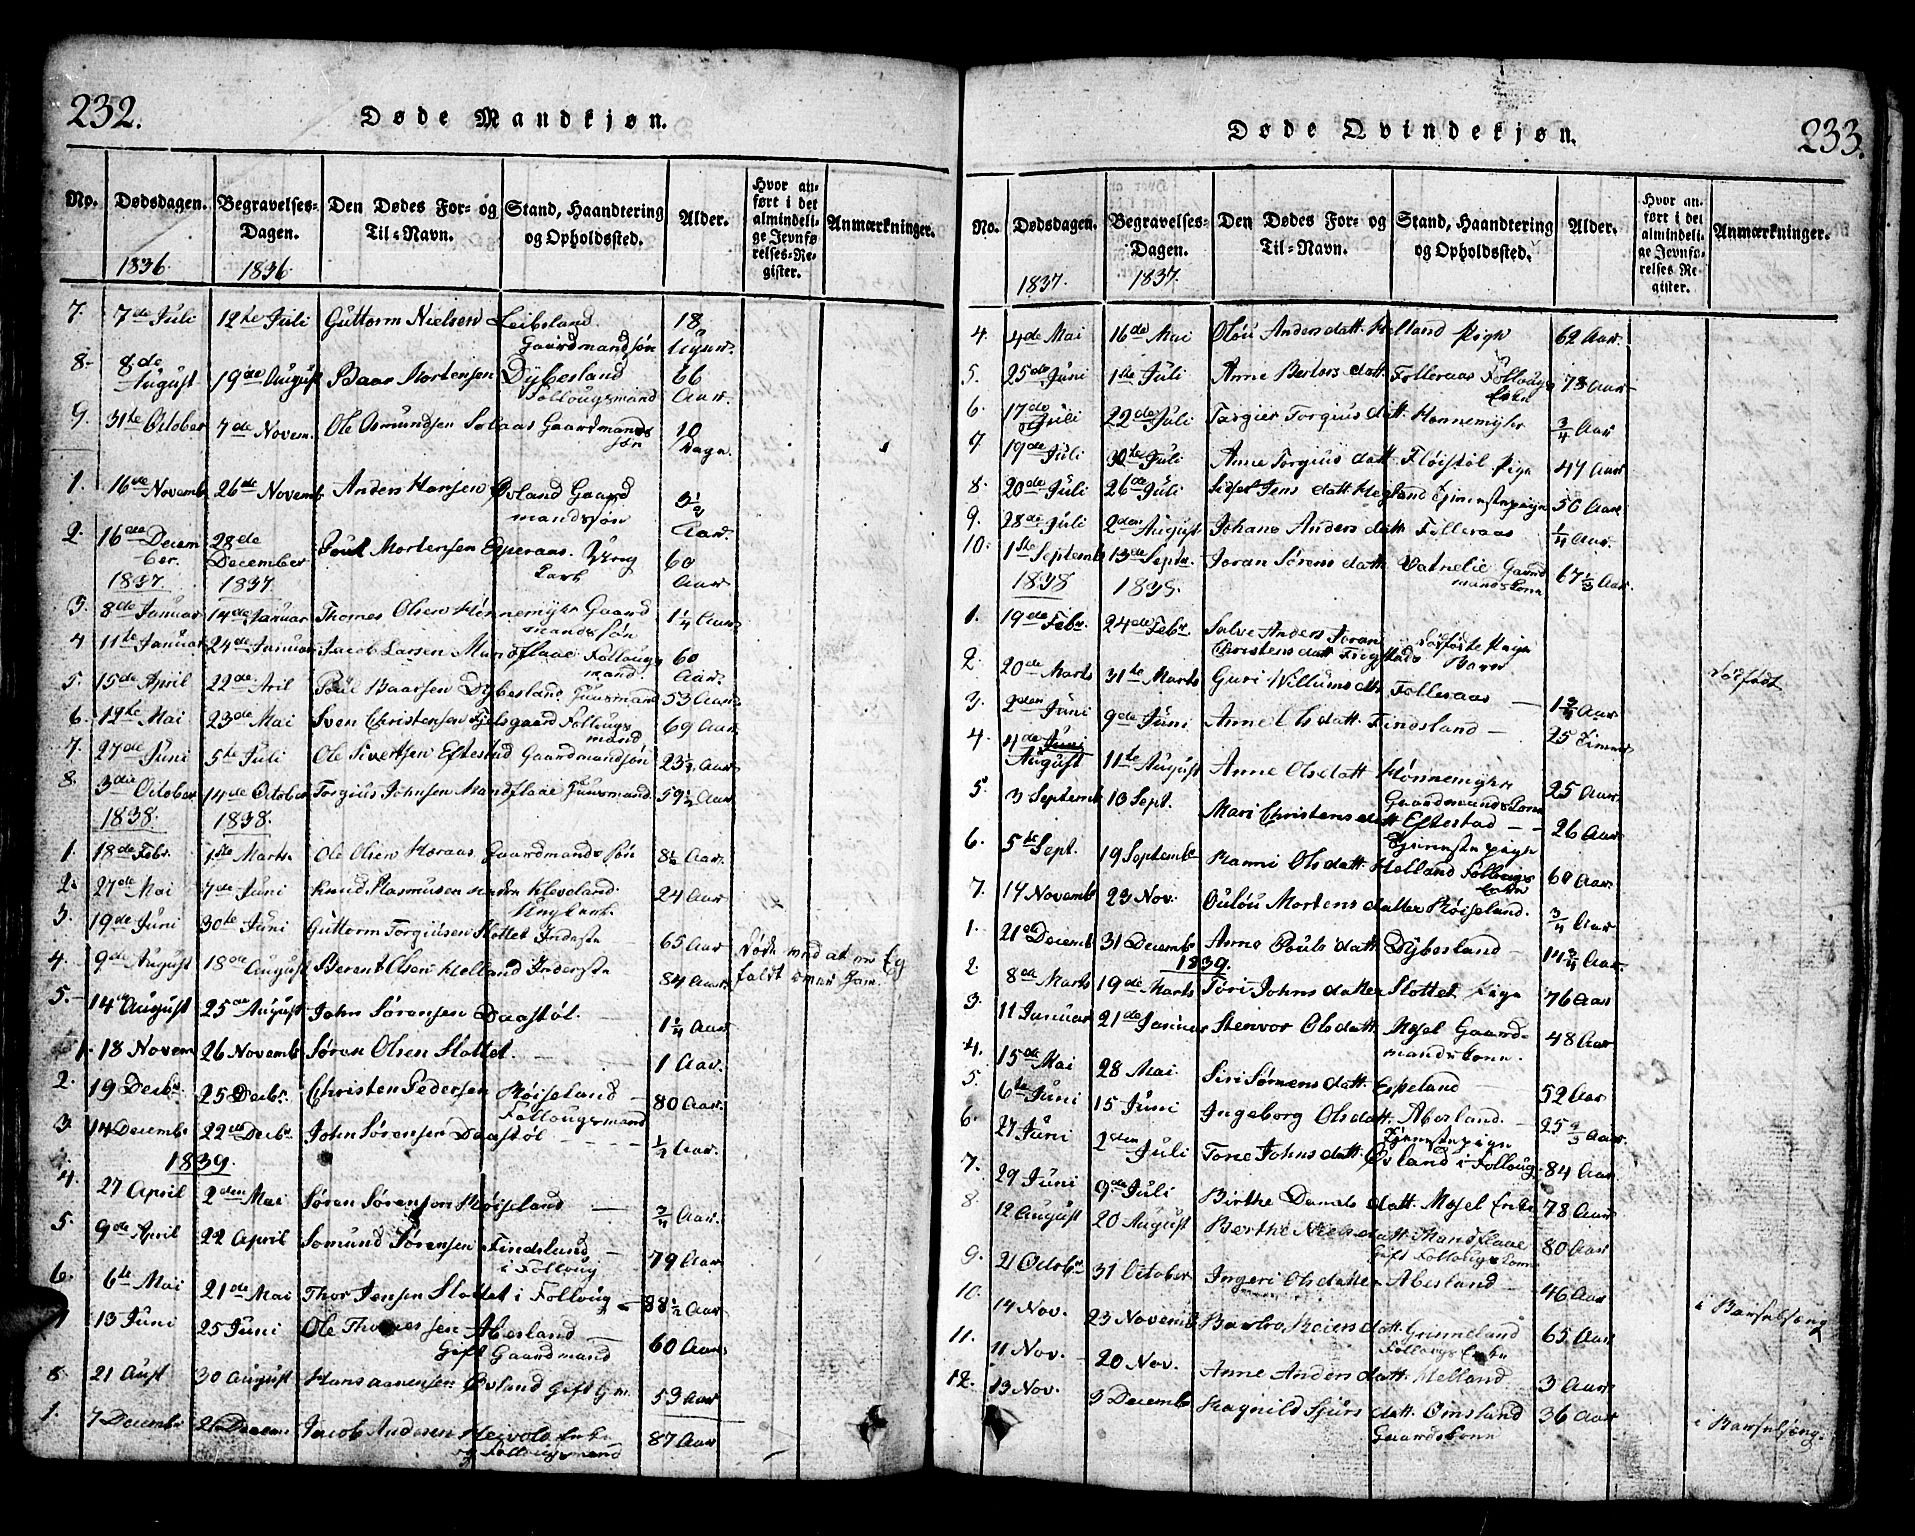 232.
Døde Mandkjøn.
No.
Dødsdagen.
Begravelses-
Dagen.
Den Dødes For- og
Til-Navn.
Stand, Haandtering
og Opholdssted.
Alder.
Hvor an-
ført i det
almindeli-
ge Jevnfø
relses-Re-
gister.
Anmærkninger.
1836. 1836
7. 7de Juli 12te Juli Guttorm Nielsen Leibsland 18
Gaardmandsøn Uger.
8. 8de
August 19de August Baar Mortensen Dybesland 66
Follougsmand Aar.
9. 31te October 7de Novem. Ole Osmundsen Solaas Gaardmands 10
søn Dage
1. 16de Novemb 26de Novemb Anders Hansen Øvland Gaard
mandssøn Aar.
2. 16de Decem 28de
ber. December Poul Mortensen Esperaas. 60
Aar
1837. 1837.
3. 8de Januar 14de Januar Thomes Olsen Hønnemyhr Gaard 1¼ Aar
mandssøn
4 11te Januar 24de Januar Jacob Larsen Mandflaae Follougs 60
mand. Aar.
5. 15de April 22de Aril Poul Baarsen Dybesland Huusmand 53 Aar
6. 12te Mai 23de Mai Sven Christensen Follougs 69 Aar
mand
7. 27de Juni 5te Juli Ole Sivertsen Eftestad Gaardmandsøn 23½ Aar
8. 3die October 14de October Torgius Johnsen Mandflaae Huusmand. 59½ Aar
1838. 1838.
1. 18de Febr. 1ste Marts. Ole Olsen Horaas Gaardmands søn Aar.
2. 27de Mai 7de Juni Knud Rasmusen Kleveland. 24 Aar
Ungkarl.
3. 19de Juni 30te Juni Guttorm Torgiusen Slottet Inderste 65 Aar Døde ved at en Eg
4. 9de August 18de August Berent Olsen Helland Inderste 84 Aar faldt over ham.
5. 14de August 25de August John Sørensen Daastøl. 1¼ Aar
1. 18 Novem 26 Novemb Søren Olsen Slottet 1 Aar.
2. 19 Decbr. 25 Decbr. Christen Pedersen Røiseland 80 Aar.
Follougsmand
3. 14 Decembr 22de Decbr John Sørensen Daastøl ½ Aar.
1839.
4. 27 April 2den Mai Søren Sørensøn Røiseland ¾ Aar.
5. 9de April 22 April Somund Sørensen Findsland 79 Aar
i Folloug
6. 6te Mai 21de Mai Thor Jensen Slottet i Folloug 88½ Aar
7 13 Juni 25 Juni Ole Thomes sen Abesland 60 Aar
Gift Gaardmand
8. 21 Aust 30 August Hans Øvland Gift Gm. 53 Aar
1. 7 Decembr Jacob Andersen Heivold 87 Aar
og Follougsmand
233.
Døde Qvindekjøn.
No.
Dødsdagen.
Begravelses-
Dagen.
Den Dødes For- og
Til-Navn.
Stand, Haandtering
og Opholdssted.
Alder.
Hvor an-
ført i det
almindeli-
ge Jevnfø-
relses Re-
gister.
Anmærkninger.
1837. 1837.
4. 4de Mai 16de Mai Oløu Anders datt. Helland Pige 62 Aar.
5. 25de Juni 1de Juli Anne Berlors datt Folleraas Follougs 73 Aar
Enke
6. 17de Juli 22de Juli Targier Torgius datt Hønnemyhr ¾ Aar
7 19de Juli 30te Juli Anne Torgius datt. Fløistøl Pige 47 Aar
8. 20de Juli 26de Juli Jens datt Hegland Tjenestepige 50 Aar
9. 28de Juli 2den August Johane Anders datt Folleraas ¼ Aar.
10. 1ste Septemb 13de Septr. Joran Sørens datt. Vatnelie Gaard 67 Aar
mandskone
1838 1838.
1. 19de Febr. 24de Febr Salve Anders Joran Dødfødte Pige
Christens datt Frigstads Barn Dødfødt
2. 20de Marts 31te Marts Guri Willums datt Folleraas Aar
3. 2den Juni 9de Juni Anne Olsdatt. Findsland 25 Timer
4. 4de Juni
August 11te August Anne Olsdatt Hønnemyhr 25 Aar
Gaardmandskone
5. 3 Septemb 13 Sept. Mari Christensdatt Eftestad 26 Aar
Tjenestepige
6. 5te Sept. 19 Septembr Olsdatt Helland Follougs 60 Aar
Enke
7. 14 Novemb 23 Nov. Oulou Mortens datter Røiseland. ¾ Aar
1. 21de Decemb 31 Decembr Anne Pouls datt Dybesland 14¾ Aar
1839.
2. 8de Marts 19de Marts Tori Johns datter Slottet Pige 76 Aar
3. 11 Januar 21de Januar Stenvor Olsdatt Mosel Gaard- 48 Aar
mandskone.
4. 15de Mai 28 Mai. Siri Sørnensdatt. Espeland 52 Aar
5. 6te Juni 15 Juni Ingeborg Olsdatt. Abesland. 25 Aar.
Tjenestepige
6. 27 Juni 2den Juli Tone Johns datt. Øvland i Folloug 84 Aar
7. 29 Juni 9de Juli Birthe Daniels datt. Mosel Enke 78 Aar
8. 12 August 20 August Berthe Nielsdatt Mandflaae 80 Aar
Gift Follougskone
9. 21 Octobr 31 October Ingeri Olsdatter Abesland 46 Aar i Barselseng
10. 14 Nov. 23 Novemb Barbro Reiersdatt. Grimeland 65 Aar
Follougs Enke
11. 11 Nov. 20 Nov. Anne Anders datt. Helland 3 Aar
12. 13 Nov. 3 Decemb Ragnild Sjurs datt. Omsland 36 Aar i Barselseng.
Gaardskone